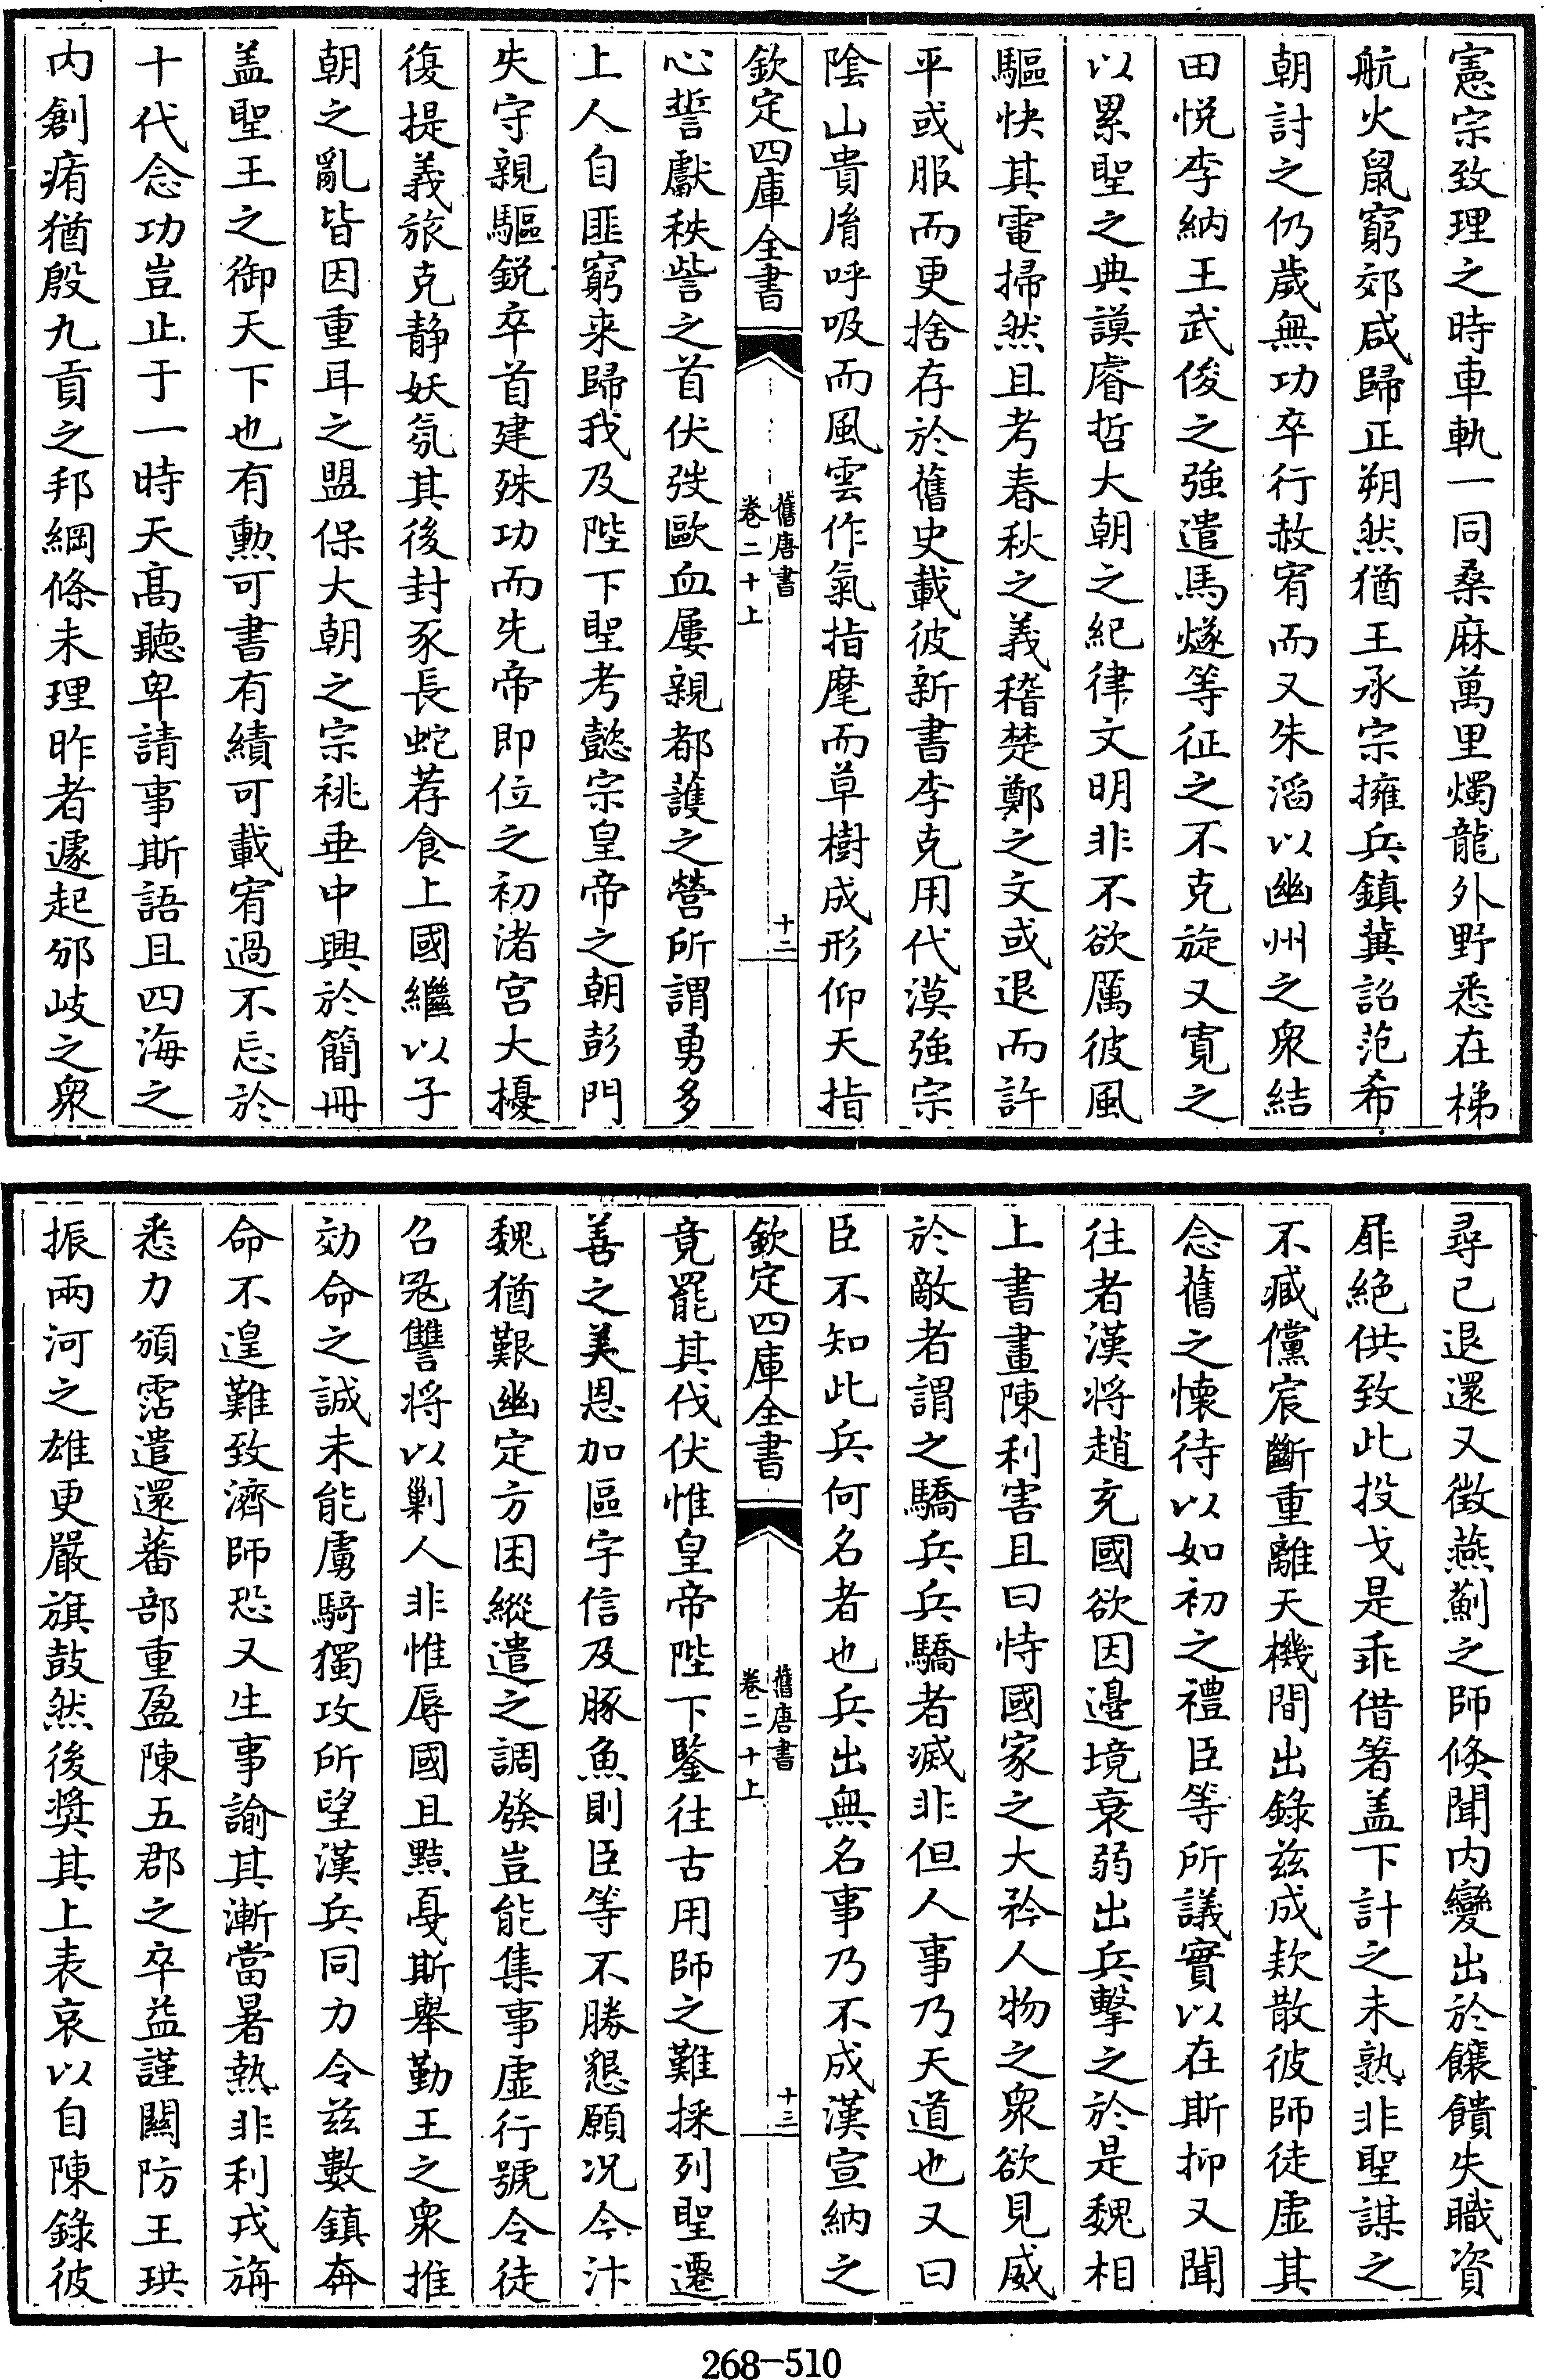 憲宗致理之時車軌一同桑麻萬里燭龍外野悉在梯
航火鼠窮郊咸歸正朔然猶王承宗擁兵鎮冀詔范希
朝討之仍歲無功卒行赦宥而又朱滔以幽州之衆結
田悅李納王武俊之強遣馬燧等征之不克旋又寛之
以累聖之典謨睿哲大朝之紀律文明非不欲厲彼風
驅快其電掃然且考春秋之義稽楚鄭之文或退而許
平或服而更捨存於舊史載彼新書李克用代漠強宗
陰山貴胤呼吸而風雲作氣指麾而草樹成形仰天指
欽定四庫全書
舊唐書
卷二十上
十二
心誓獻秩訾之首伏弢歐血屢親都護之營所謂勇多
上人自匪窮来歸我及陛下聖考懿宗皇帝之朝彭門
失守親驅銳卒首建殊功而先帝即位之初渚宫大擾
復提義旅克静妖氛其後封豕長蛇荐食上國繼以子
朝之亂皆因重耳之盟保大朝之宗祧垂中興於簡冊
盖聖王之御天下也有勲可書有績可載宥過不忘於
十代念功豈止于一時天髙聽卑請事斯語且四海之
内創痏猶殷九貢之邦綱條未理昨者遽起邠岐之衆
尋已退還又徴燕薊之師倐聞内變出於饟饋失職資
屝絶供致此投戈是乖借箸盖下計之未熟非聖謀之
不臧儻宸斷重離天機間出錄兹成欵散彼師徒虛其
念舊之懐待以如初之禮臣等所議實以在斯抑又聞
往者漢将趙充國欲因邊境衰弱出兵擊之於是魏相
上書畫陳利害且曰恃國家之大矜人物之衆欲見威
於敵者謂之驕兵兵驕者滅非但人事乃天道也又曰
臣不知此兵何名者也兵出無名事乃不成漢宣納之
欽定四庫全書
舊唐書
卷二十上
十三
竟罷其伐伏惟皇帝陛下鑒往古用師之難採列聖遷
善之美恩加區宇信及豚魚則臣等不勝懇願况今汴
魏猶艱幽定方困縱遣之調發豈能集事虛行號令徒
召冦讐将以剿人非惟辱國且黠戛斯舉勤王之衆推
効命之誠未能虜騎獨攻所望漢兵同力令兹數鎮奔
命不遑難致濟師恐又生事諭其漸當暑熱非利戎旃
悉力頒霑遣還蕃部重盈陳五郡之卒益謹關防王珙
振兩河之雄更嚴旗鼓然後奬其上表哀以自陳錄彼
268-510